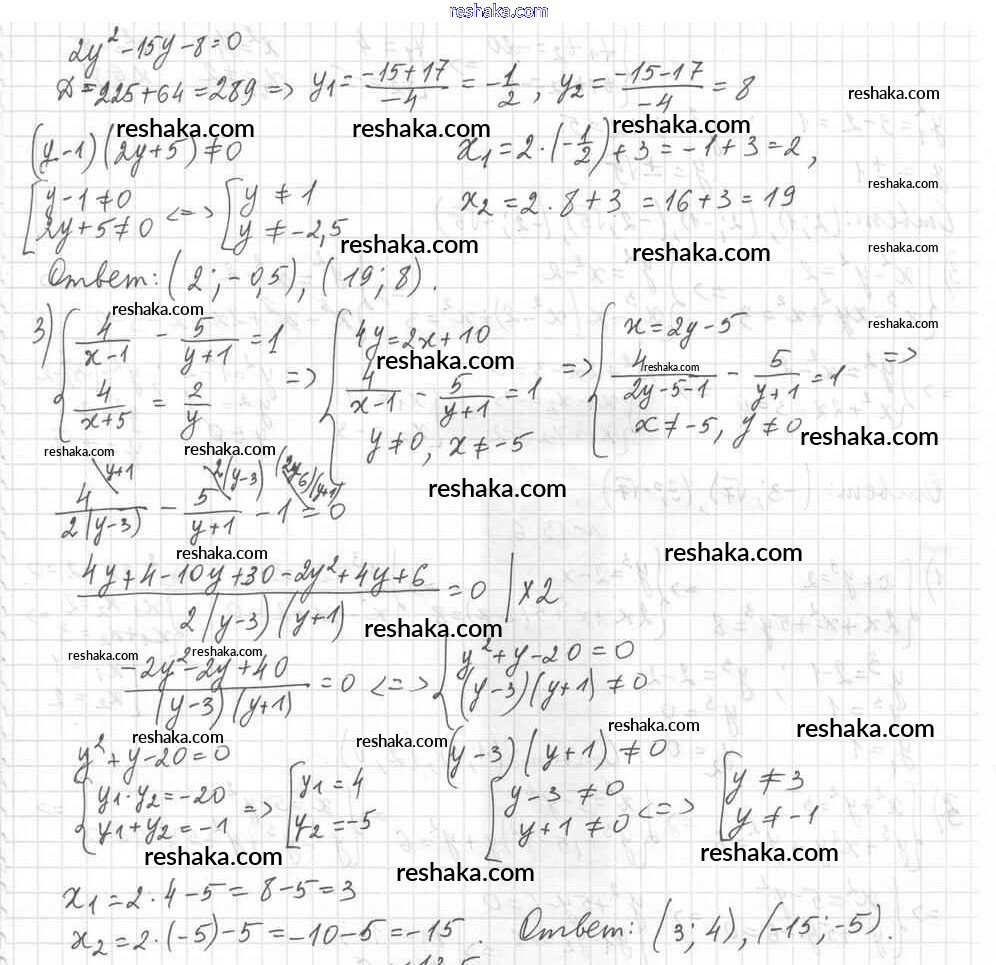 reshaka.com
2y² - 15y - 8 = 0
D = 225 + 64 = 289 => y₁ = (-15+17)/(-4) = -1/2, y₂ = (-15-17)/(-4) = 8
reshaka.com
reshaka.com reshaka.com reshaka.com
(y-1)(2y+5) ≠ 0
x₁ = 2·(-1/2)+3 = -1+3 = 2,
[y-1 ≠ 0
2y+5 ≠ 0 <=> [y ≠ 1
y ≠ -2,5
x₂ = 2·8+3 = 16+3 = 19
reshaka.com
reshaka.com reshaka.com reshaka.com
Ответ: (2; -0,5), (19; 8).
reshaka.com
3) {4/(x-1) - 5/(y+1) = 1
4/(x+5) = 2/y
=> {4y = 2x+10
4/(x-1) - 5/(y+1) = 1
y ≠ 0, x ≠ -5
=> {x = 2y-5
4/(2y-5-1) - 5/(y+1) = 1
x ≠ -5, y ≠ 0 =>
reshaka.com
reshaka.com
reshaka.com
reshaka.com
reshaka.com reshaka.com
reshaka.com
y+1 2(y-3) (2y-6)(y+1)
4/(2(y-3)) - 5/(y+1) - 1 = 0
reshaka.com reshaka.com
(4y+4-10y+30-2y²+4y+6)/(2(y-3)(y+1)) = 0 | ×2
reshaka.com
reshaka.com reshaka.com
(-2y²-2y+40)/((y-3)(y+1)) = 0 <=> {y²+y-20 = 0
(y-3)(y+1) ≠ 0
reshaka.com reshaka.com reshaka.com reshaka.com
y²+y-20 = 0
{y₁·y₂ = -20
y₁+y₂ = -1 => [y₁ = 4
y₂ = -5
(y-3)(y+1) ≠ 0
[y-3 ≠ 0
y+1 ≠ 0 <=> [y ≠ 3
y ≠ -1
reshaka.com reshaka.com
reshaka.com
x₁ = 2·4-5 = 8-5 = 3
x₂ = 2·(-5)-5 = -10-5 = -15. Ответ: (3; 4), (-15; -5).